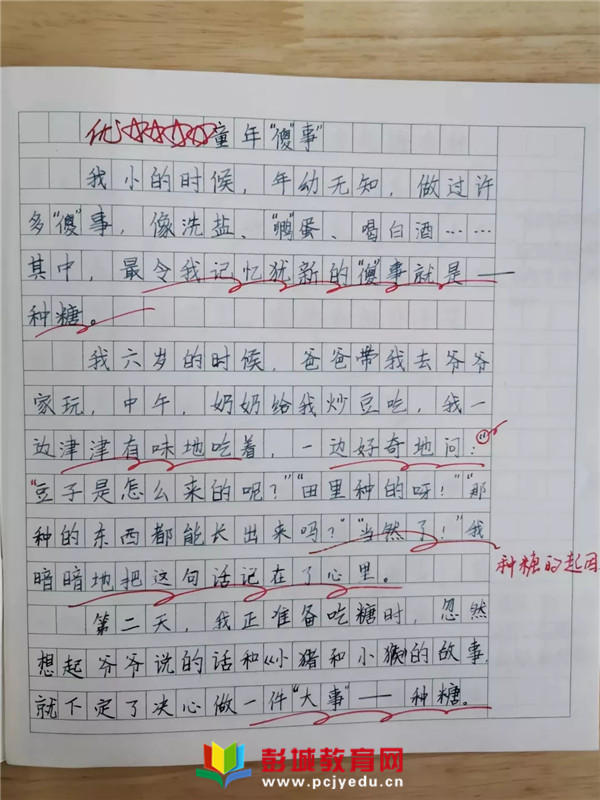 优☆☆☆☆☆童年“傻”事”
我小的时候，年幼无知，做过许
多“傻”事，像洗盐、“孵”蛋、喝白酒……
其中，最令我记忆犹新的“傻”事就是——
种糖。
我六岁的时候，爸爸带我去爷爷
家玩，中午，奶奶给我炒豆吃，我一
边津津有味地吃着，一边好奇地问：“
“豆子是怎么来的呢？”“田里种的呀！”“那
种的东西都能长出来吗？”“当然了！”我
暗暗地把这句话记在了心里。
种糖的起因
第二天，我正准备吃糖时，忽然
想起爷爷说的话和《小猪和小猴》的故事，
就下定了决心做一件“大事”——种糖。
彭城教育网
www.pcjyedu.cn